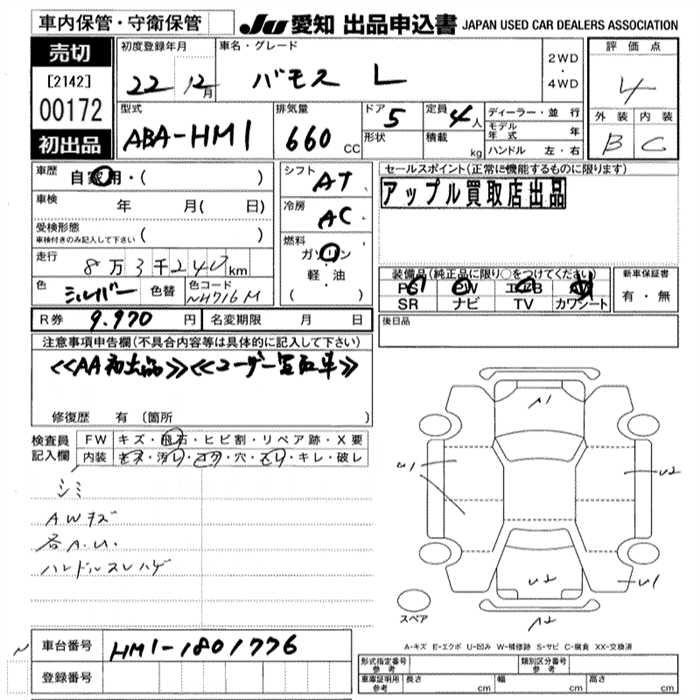 車内保管・守衛保管
JU 愛知 出品申込書 JAPAN USED CAR DEALERS ASSOCIATION
売切
[2142]
00172
初出品
初度登録年月 22 12月
車名・グレード バモス L
2WD
・
4WD
評価点
4
外装 内装
B C
型式 ABA-HM1
排気量 660 CC
ドア 5
形状
定員 4人
積載 kg
ディーラー・並行
モデル年式 年
ハンドル 左・右
車歴 自家用・( )
車検 年 月( 日)
受検形態
車検付きのみ記入して下さい ( )
走行 8万3千240km
色 シルバー 色替 色コード NH716M
シフト AT
冷房 AC
燃料
ガソリン
軽・油
( )
セールスポイント(正常に機能するものに限ります)
アップル買取店出品
装備品(純正品に限り○をつけてください)
SR ナビ TV カワシート
新車保証書
有・無
R券 9.970 円 名変期限 月 日
後日品
注意事項申告欄(不具合内容等は具体的に記入して下さい)
≪AA初出品≫≪ユーザー買取車≫
修復歴 有 (箇所 )
検査員記入欄
FW キズ・飛石・ヒビ割・リペア跡・X要
内装 キズ・汚レ・コゲ・穴・スレ・キレ・破レ
シミ
AWキズ
各A.U.
ハンドルスレハゲ
A1
U1
U2
U2
U1
A2
スペア
A-キズ E-エクボ U-凹み W-補修跡 S-サビ C-腐食 XX-交換済
車台番号 HM1-1801776
登録番号
形式指定番号 参考
類別区分番号 参考
車庫証明用 参考 長さ cm 幅 cm 高さ cm